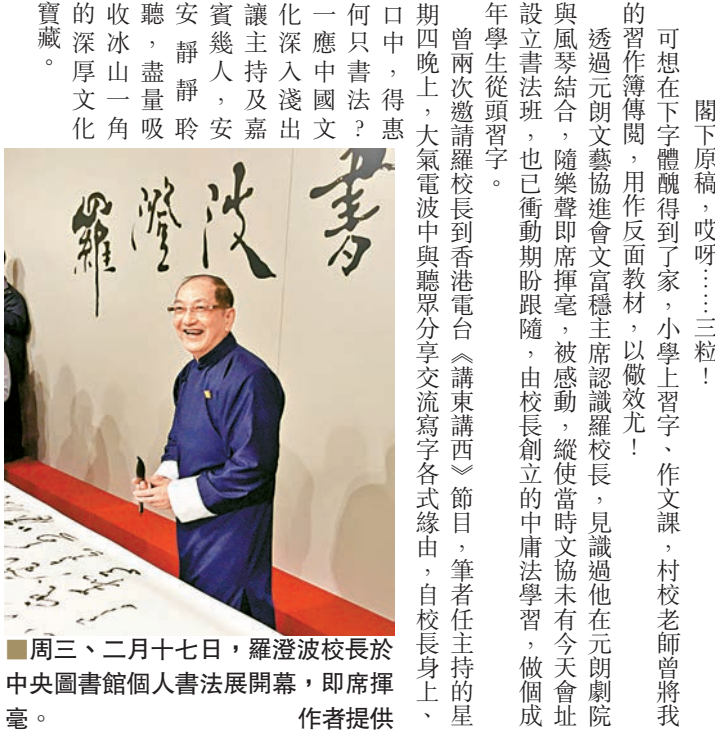 閣下原稿，哎呀……三粒！
可想在下字體醜得到了家，小學上習字、作文課，村校老師曾將我
的習作簿傳閱，用作反面教材，以儆效尤！
透過元朗文藝協進會文富穩主席認識羅校長，見識過他在元朗劇院
與風琴結合，隨樂聲即席揮毫，被感動，縱使當時文協未有今天會址
設立書法班，也已衝動期盼跟隨，由校長創立的中庸法學習，做個成
年學生從頭習字。
曾兩次邀請羅校長到香港電台《講東講西》節目，筆者任主持的星
期四晚上，大氣電波中與聽眾分享交流寫字各式緣由，自校長身上、
口中，得惠
何只書法？
一應中國文
化深入淺出
讓主持及嘉
賓幾人，安
安靜靜聆
聽，盡量吸
收冰山一角
的深厚文化
寶藏。
羅澄波書
■周三、二月十七日，羅澄波校長於
中央圖書館個人書法展開幕，即席揮
毫。 作者提供